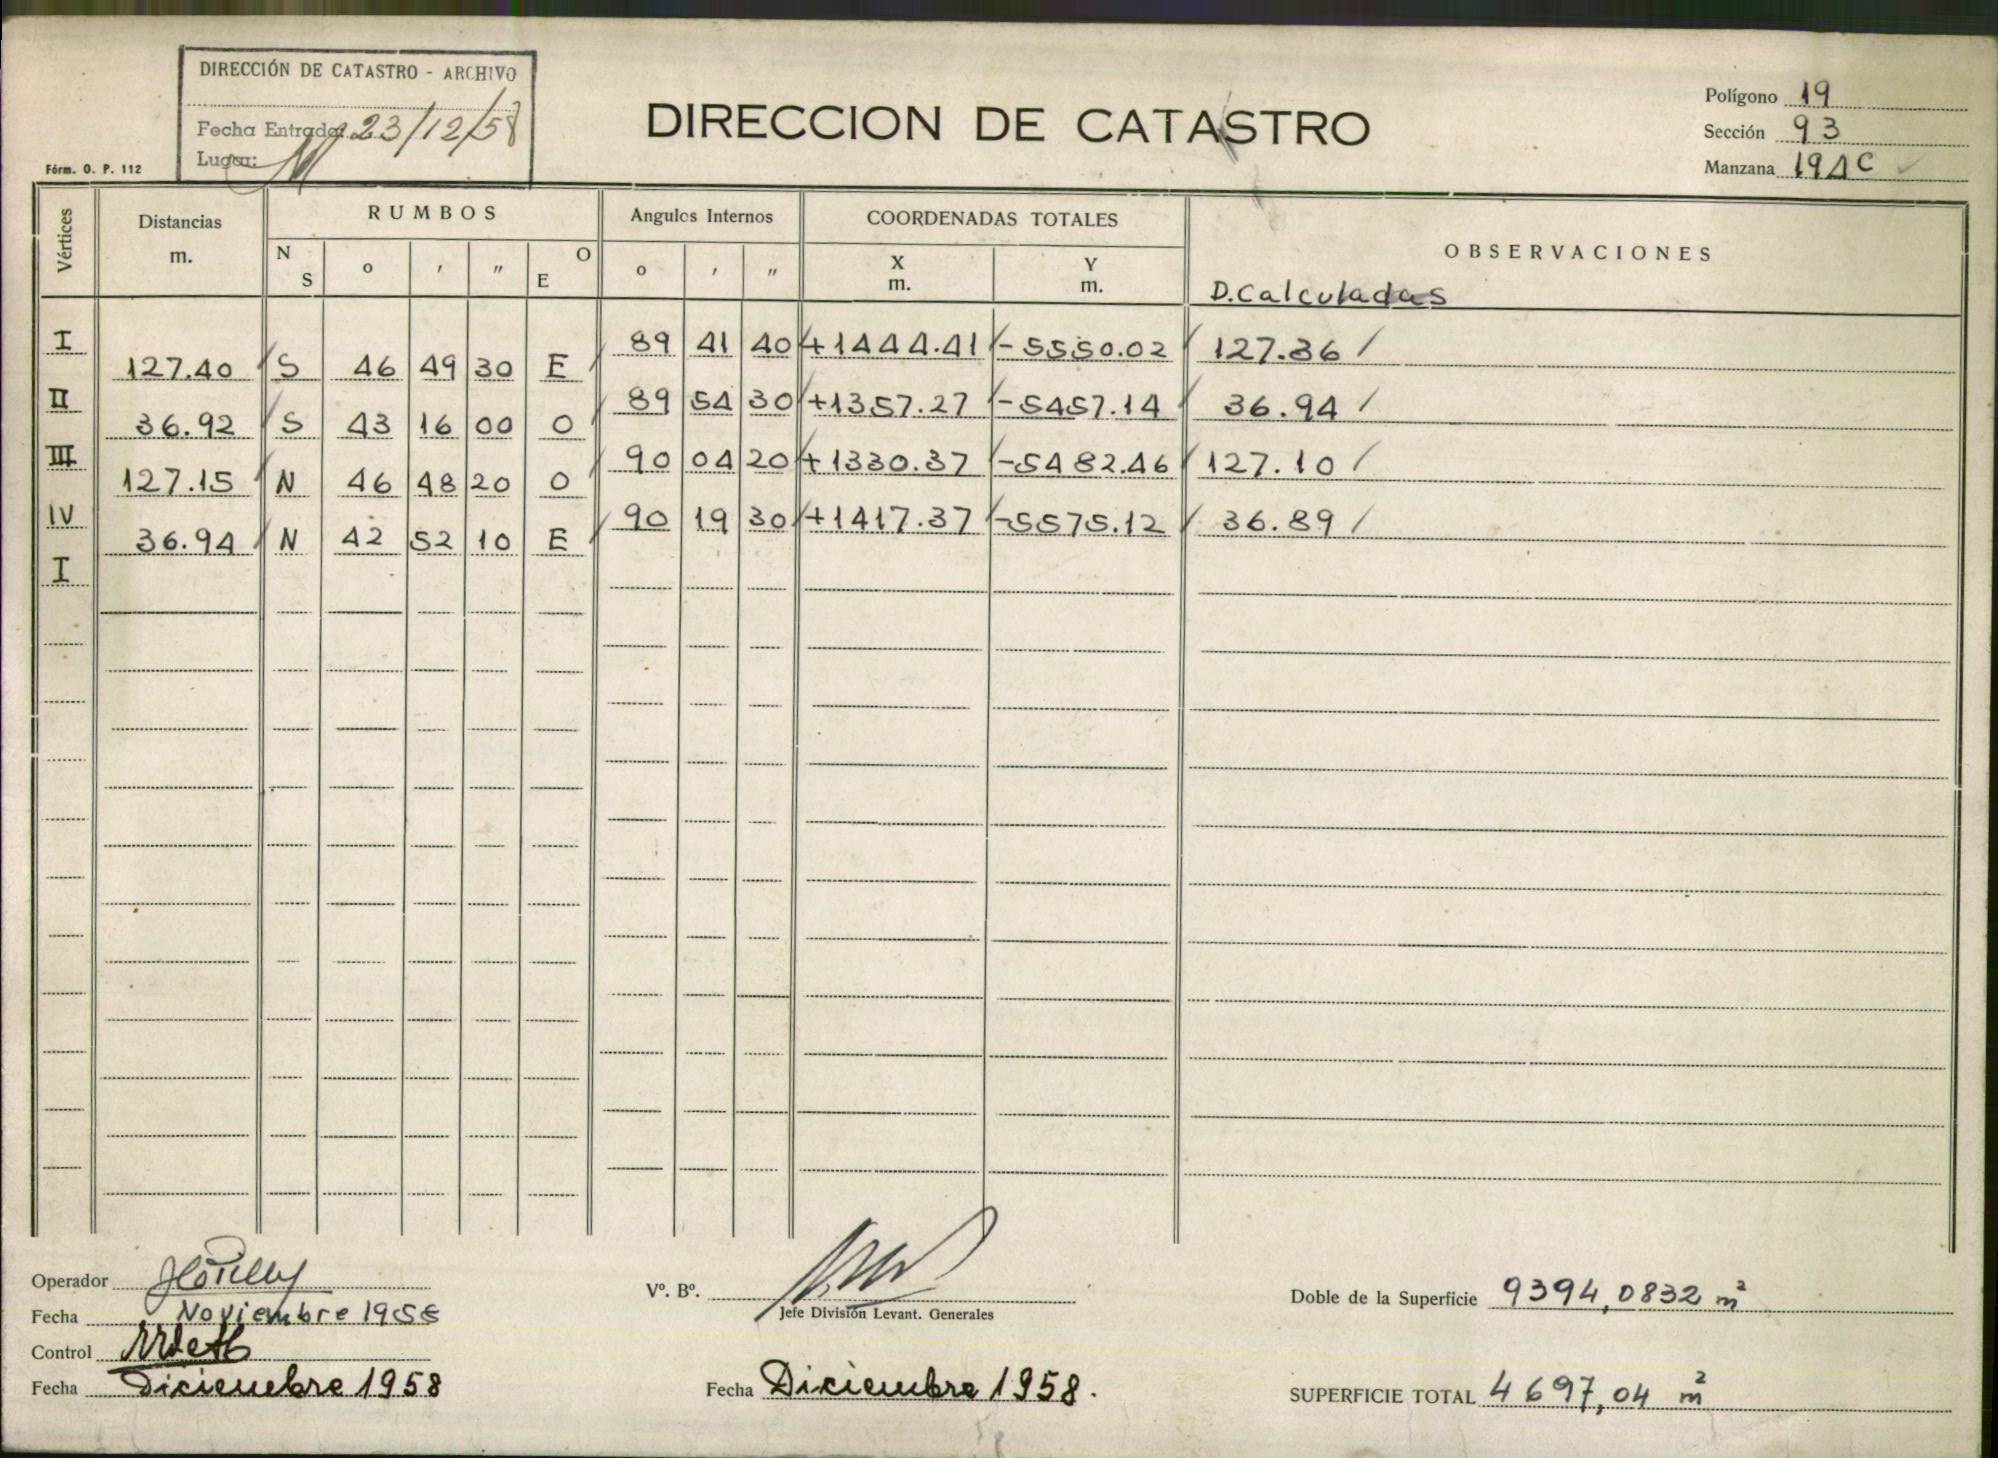 DIRECCIÓN DE CATASTRO - ARCHIVO
Fecha Entrada: 23/12/58
Lugar:
Fórm. O. P. 112
DIRECCION DE CATASTRO
Polígono 19
Sección 93
Manzana 194C
Vértices Distancias m. RUMBOS Angulos Internos COORDENADAS TOTALES OBSERVACIONES
N S o ' " O E o ' " X m. Y m. D. Calculadas
I 89 41 40 +1444.41 -5550.02 127.36
127.40 S 46 49 30 E
II 89 54 30 +1357.27 -5457.14 36.94
36.92 S 43 16 00 O
III 90 04 20 +1330.37 -5482.46 127.10
127.15 N 46 48 20 O
IV 90 19 30 +1417.37 -5575.12 36.89
36.94 N 42 52 10 E
I
Operador
Fecha Noviembre 1958
Control
Fecha Diciembre 1958
Vº. Bº.
Jefe División Levant. Generales
Fecha Diciembre 1958.
Doble de la Superficie 9394,0832 m²
SUPERFICIE TOTAL 4697,04 m²